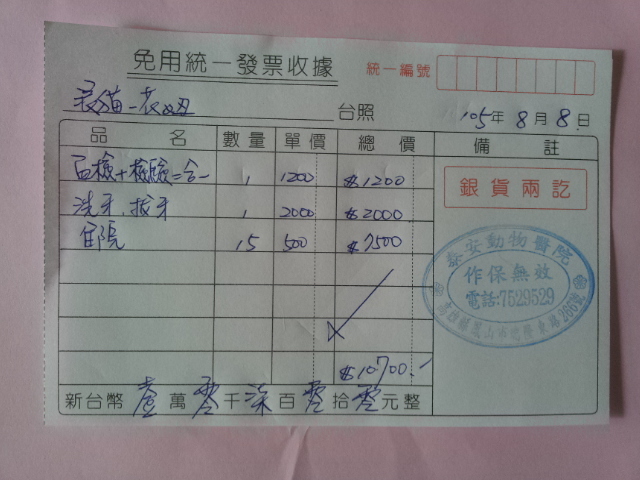 免用統一發票收據
統一編號
台照
105年8月8日
品名 數量 單價 總價 備註
血檢+檢驗二合一 1 1200 $1200
銀貨兩訖
洗牙、拔牙 1 2000 $2000
住院 15 500 $7500
泰安動物醫院
作保無效
電話:7529529
$10700.-
新台幣壹萬零千柒百零拾零元整